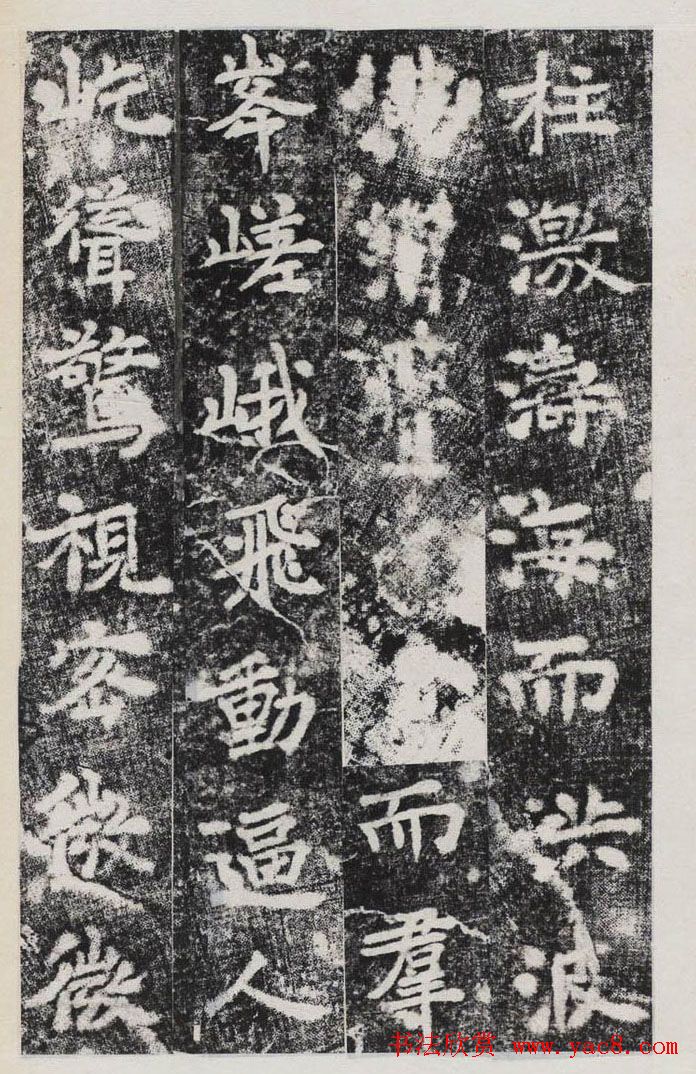 柱激濤海而洪波
而羣
峯嵯峨飛動逼人
屹聳驚視密微
书法欣赏 www.yac8.com